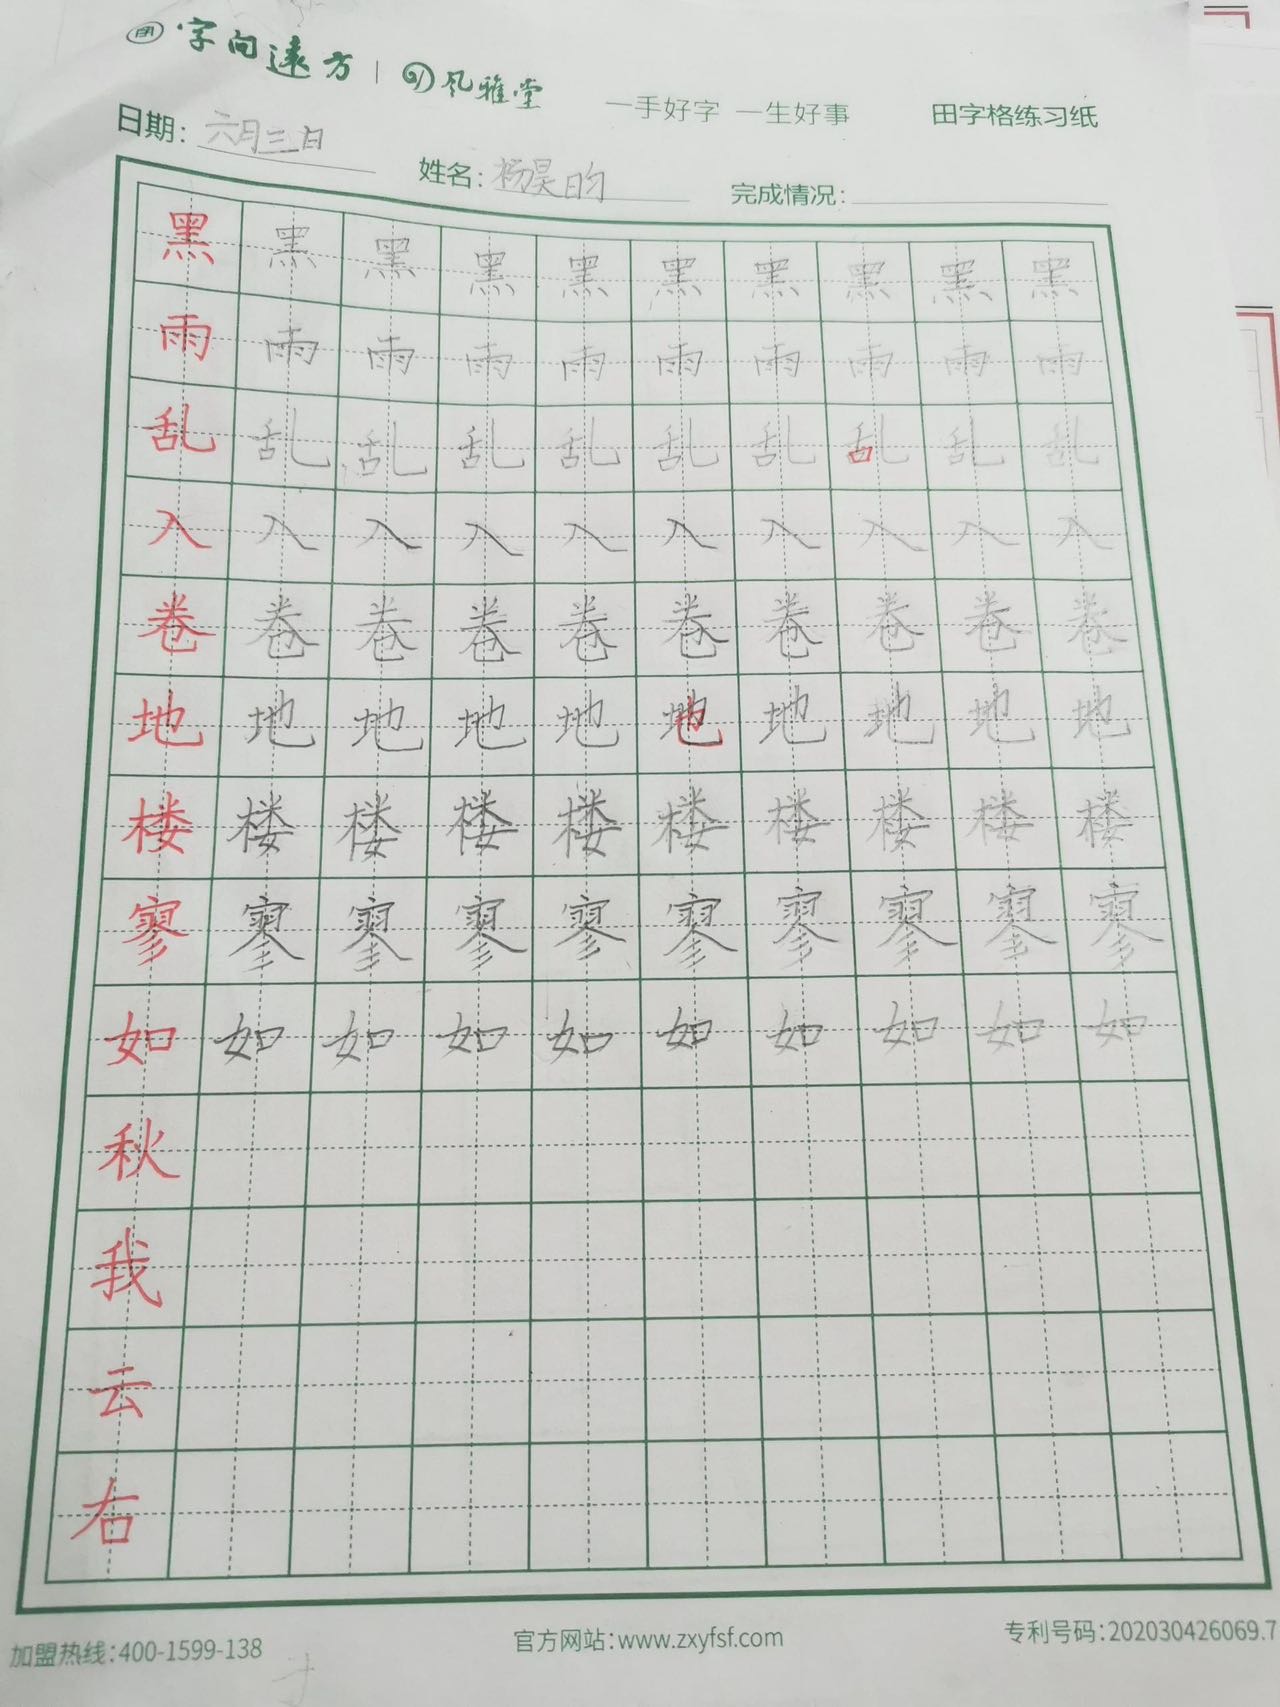 字向远方 | 风雅堂
一手好字 一生好事 田字格练习纸
日期：六月三日 姓名：杨昊昀 完成情况：
黑 黑 黑 黑 黑 黑 黑 黑 黑 黑
雨 雨 雨 雨 雨 雨 雨 雨 雨 雨
乱 乱 乱 乱 乱 乱 乱 乱 乱 乱
入 入 入 入 入 入 入 入 入 入
卷 卷 卷 卷 卷 卷 卷 卷 卷 卷
地 地 地 地 地 地 地 地 地 地
楼 楼 楼 楼 楼 楼 楼 楼 楼 楼
寥 寥 寥 寥 寥 寥 寥 寥 寥 寥
如 如 如 如 如 如 如 如 如 如
秋
我
云
右
加盟热线：400-1599-138 官方网站：www.zxyfsf.com 专利号码：202030426069.7